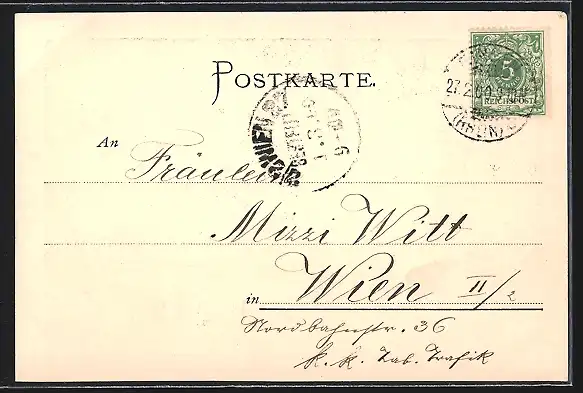 POSTKARTE.
5
REICHSPOST
27.2.00
(RHEIN)
An Fräulein
Mizzi Witt
in Wien II/2
Nordbahnstr. 36
k. k. Tab. Trafik